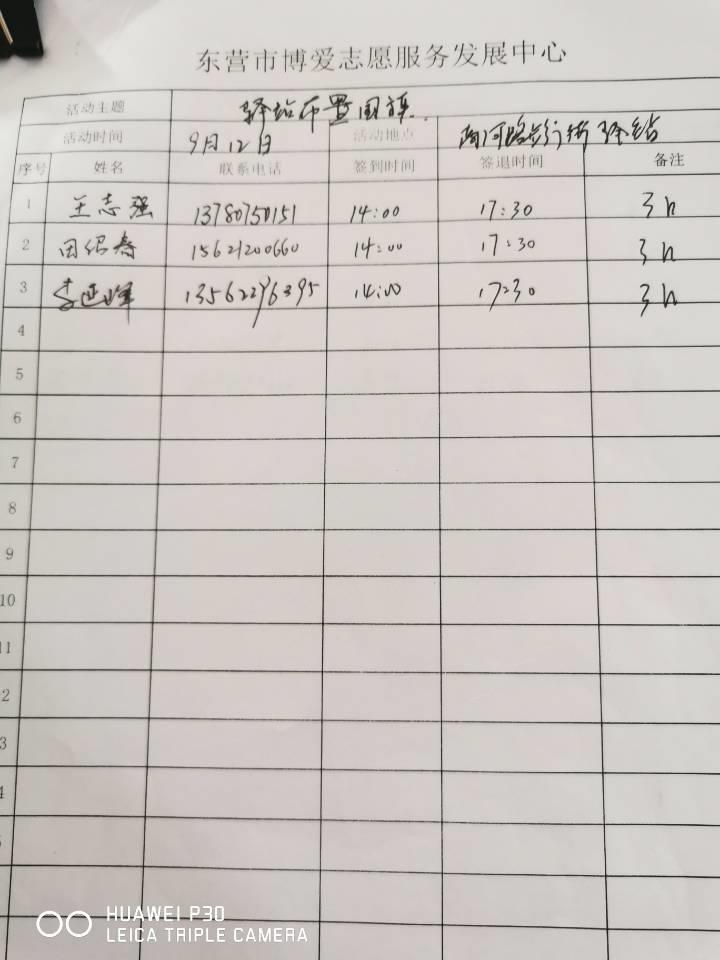 东营市博爱志愿服务发展中心
活动主题 驿站布置国旗.
活动时间 9月12日 活动地点 步行街驿站
序号 姓名 联系电话 签到时间 签退时间 备注
1 王志强 13780750151 14:00 17:30 3h
2 田绍春 15621200660 14:00 17:30 3h
3 李延峰 13562296395 14:00 17:30 3h
4
5
6
7
8
9
10
11
2
3
4
HUAWEI P30
LEICA TRIPLE CAMERA